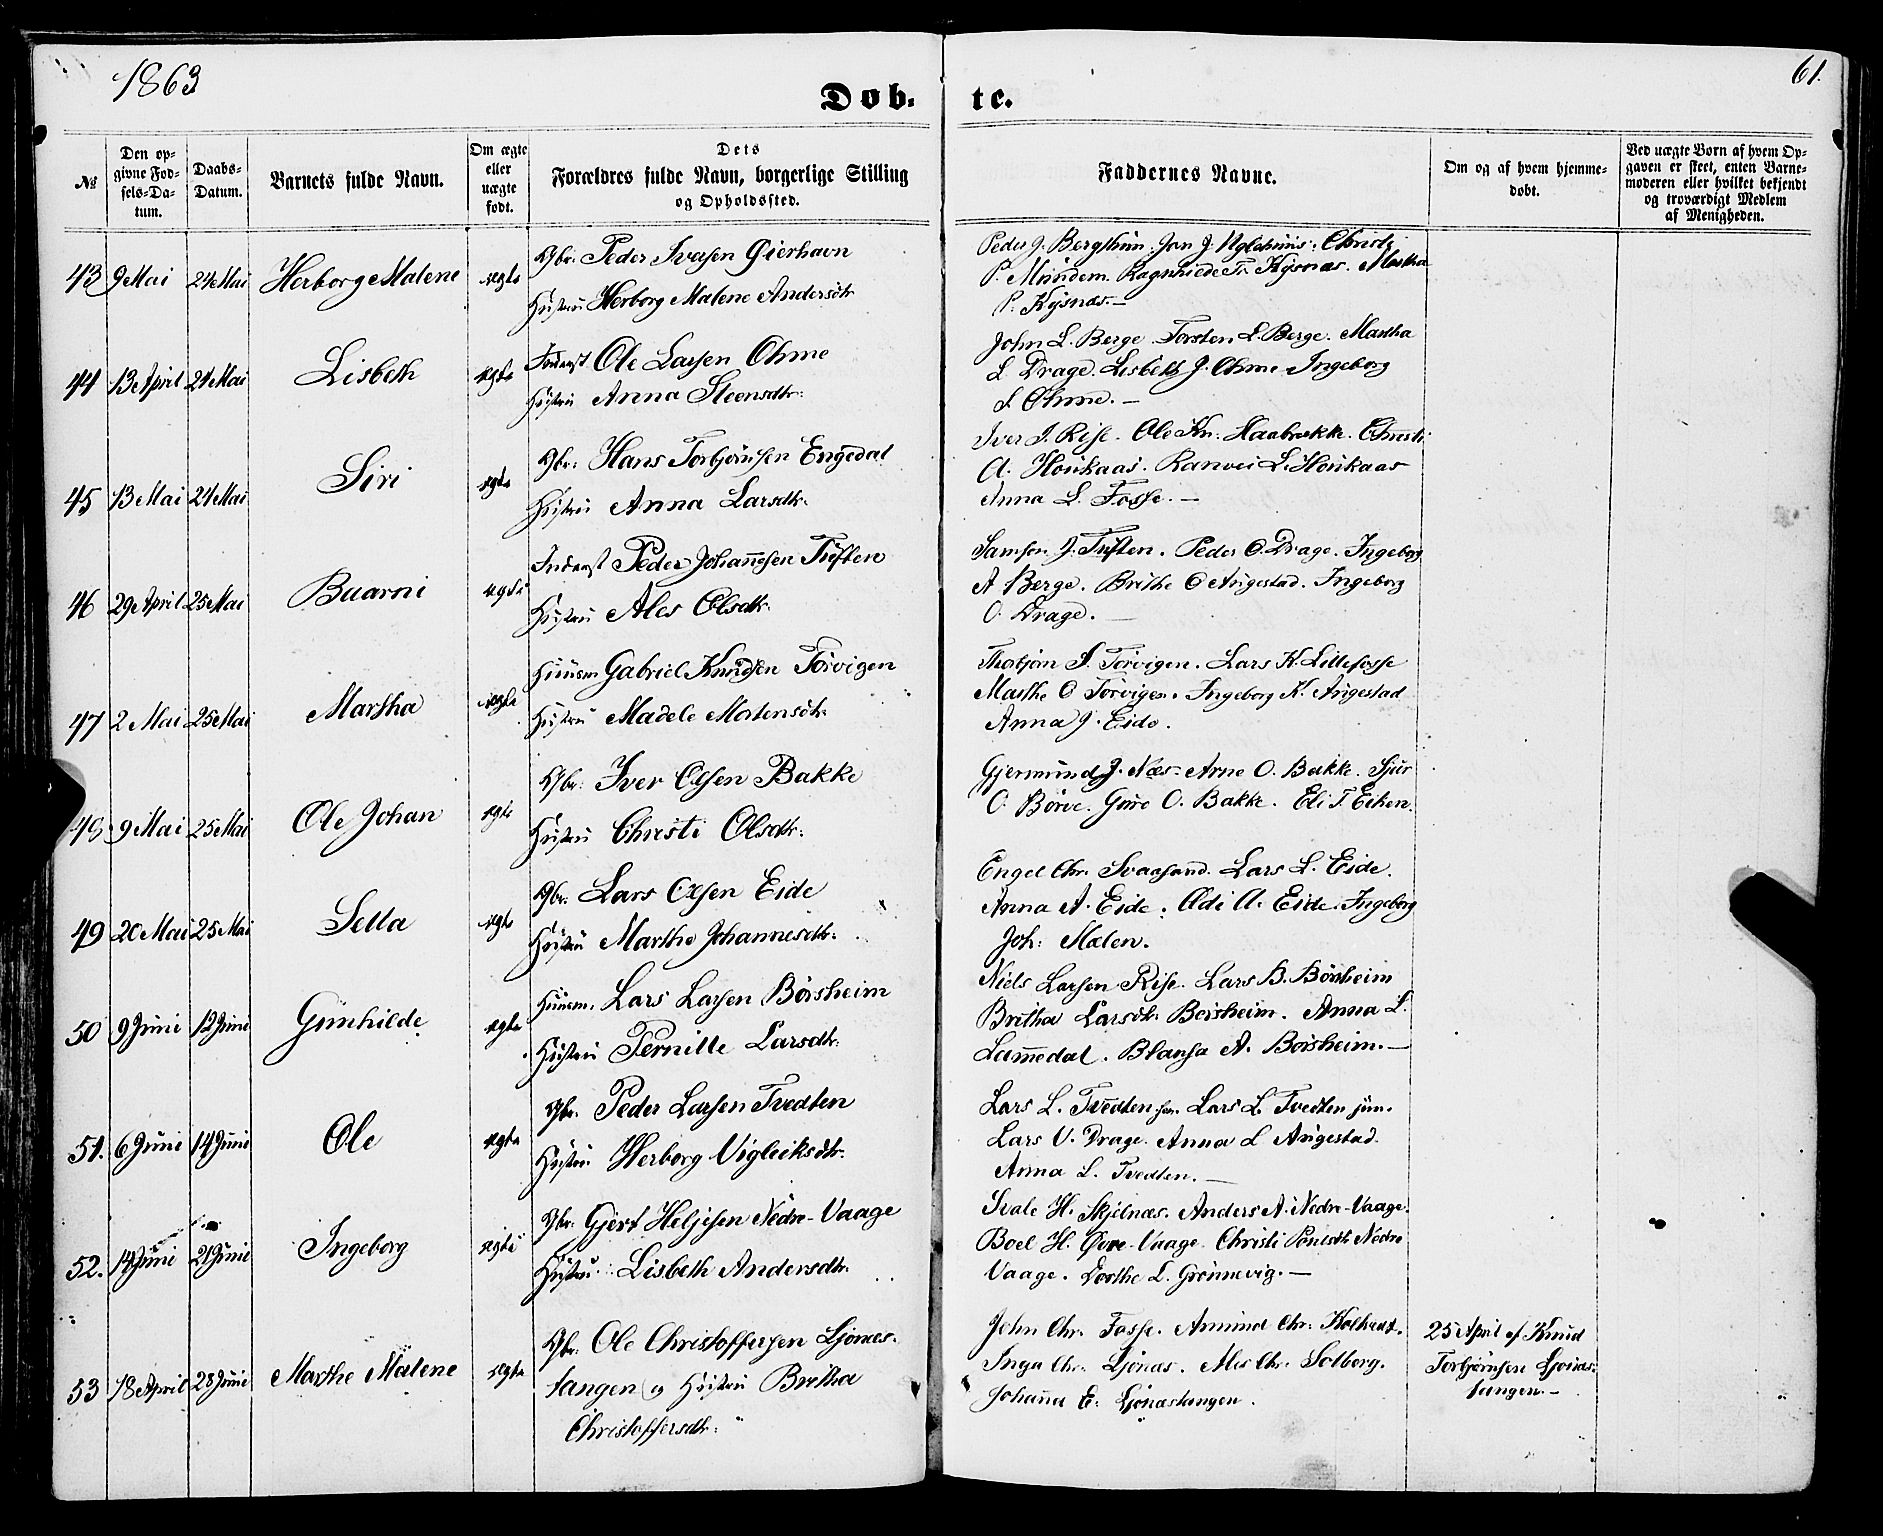 1863
61.
Døb- te.
№
Den op-
givne Fød-
sels-Da-
tum.
Daabs-
Datum.
Barnets fulde Navn.
Om ægte
eller
uægte
født.
Dets
Forældres fulde Navn, borgerlige Stilling
og Opholdssted.
Faddernes Navne.
Om og af hvem hjemme-
døbt.
Ved uægte Børn af hvem Op-
gaven er skeet, enten Barne-
moderen eller hvilket bekjendt
og troværdigt Medlem
af Menigheden.
43 9 Mai 24 Mai Herborg Malene ægte
Gbr. Peder Ivarsen Gierhavn
Hustru Herborg Malene Andersdtr
Peder J. Bergthun. Jan J. Christi
P. Mundem. Ragnhilde Kysnæs. Martha
P. Kysnæs.—
44 13 April 24 Mai Lisbeth ægte
Inderst Ole Larsen Ohme
Hustru Anna Steensdtr.
John L. Berge. Torsten L. Berge. Martha
L Drage. Lisbeth J. Ohme. Ingeborg
S. Ohme.—
45 13 Mai 24 Mai Siri ægte
Gbr. Hans Torbjørnsen Engedal
Hustru Anna Larsdtr.
Iver I. Rise. Ole Kn. Haabrekke. Christi
A. Houkaas. Ranvei L. Houkaas
Anna L. Fosse.—
46 29 April 25 Mai Buarni ægte
Inderst Peder Johannesen Tuften
Hustru Ales Olsdtr.
Samson J. Tuften. Peder O. Drage. Ingeborg
A Berge. Brithe O Augestad. Ingeborg
O. Drage.—
47 2 Mai 25 Mai Martha ægte
Huusm. Gabriel Knudsen Torvigen
Hustru Madele Mortensdtr.
Thorbjørn S. Torvigen. Lars K. Lillefosse
Marthe O Torvigen. Ingeborg K. Augestad
Anna J. Eide.
48 9 Mai 25 Mai Ole Johan ægte
Gbr. Iver Olsen Bakke
Hustru Christi Olsdtr.
Gjermund J. Næs. Arne O. Bakke. Sjur
O. Børve. Guro O. Bakke. Eli T. Eiken.
49 20 Mai 25 Mai Sella ægte
Gbr. Lars Olsen Eide
Hustru Marthe Johannesdtr.
Engel Chr. Svaasand. Lars L. Eide.
Anna A. Eide. Adi A. Eide. Ingeborg
Joh: Mælen.
50 9 Juni 12 Juni Gunhilde ægte
Huusm. Lars Larsen Børsheim
Hustru Pernille Larsdtr.
Niels Larsen Rise. Lars B. Børsheim
Britha Larsdtr. Børsheim. Anna L.
Lammedal. Blansa A. Børsheim.—
51. 6 Juni 14 Juni Ole ægte
Gbr. Peder Larsen Tvedten
Hustru Herborg Vigleiksdtr.
Lars L. Tvedten sen. Lars L. Tvedten jun.
Lars V. Drage. Anna L Augestad.
Anna L. Tvedten.—
52. 14 Juni 21 Juni Ingeborg ægte
Gbr. Gjert Heljesen Nedre-Vaage
Hustru Lisbeth Andersdtr.
Svale H. Skjelnæs. Anders A. Nedre-Vaage.
Boel H. Øvre-Vaage. Christi Nedre
Vaage. Dorthe L. Grønnevig.—
53 18 April 28 Juni Marthe Malene ægte
Gbr. Ole Christoffersen Ljønæs-
tangen og Hustru Britha
Christoffersdtr.
John Chr. Fosse. Amund Chr. Kolltvet.
Inga Chr. Ljønæs. Ales Chr. Solberg.
Johanna E. Ljønæstangen.
25 April af Knud
Torbjørnsen Ljonæs-
tangen.—